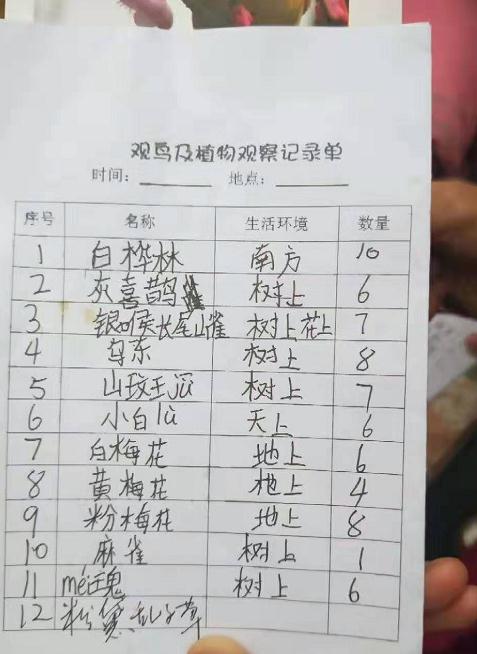 观鸟及植物观察记录单
时间： 地点：
序号 名称 生活环境 数量
1 白桦林 南方 10
2 灰喜鹊 树上 6
3 银喉长尾山雀 树上花上 7
4 乌东 树上 8
5 山玟王jū 树上 7
6 小白lù 天上 6
7 白梅花 地上 6
8 黄梅花 地上 4
9 粉梅花 地上 8
10 麻雀 树上 1
11 méi瑰 树上 6
12 粉黛乱子草